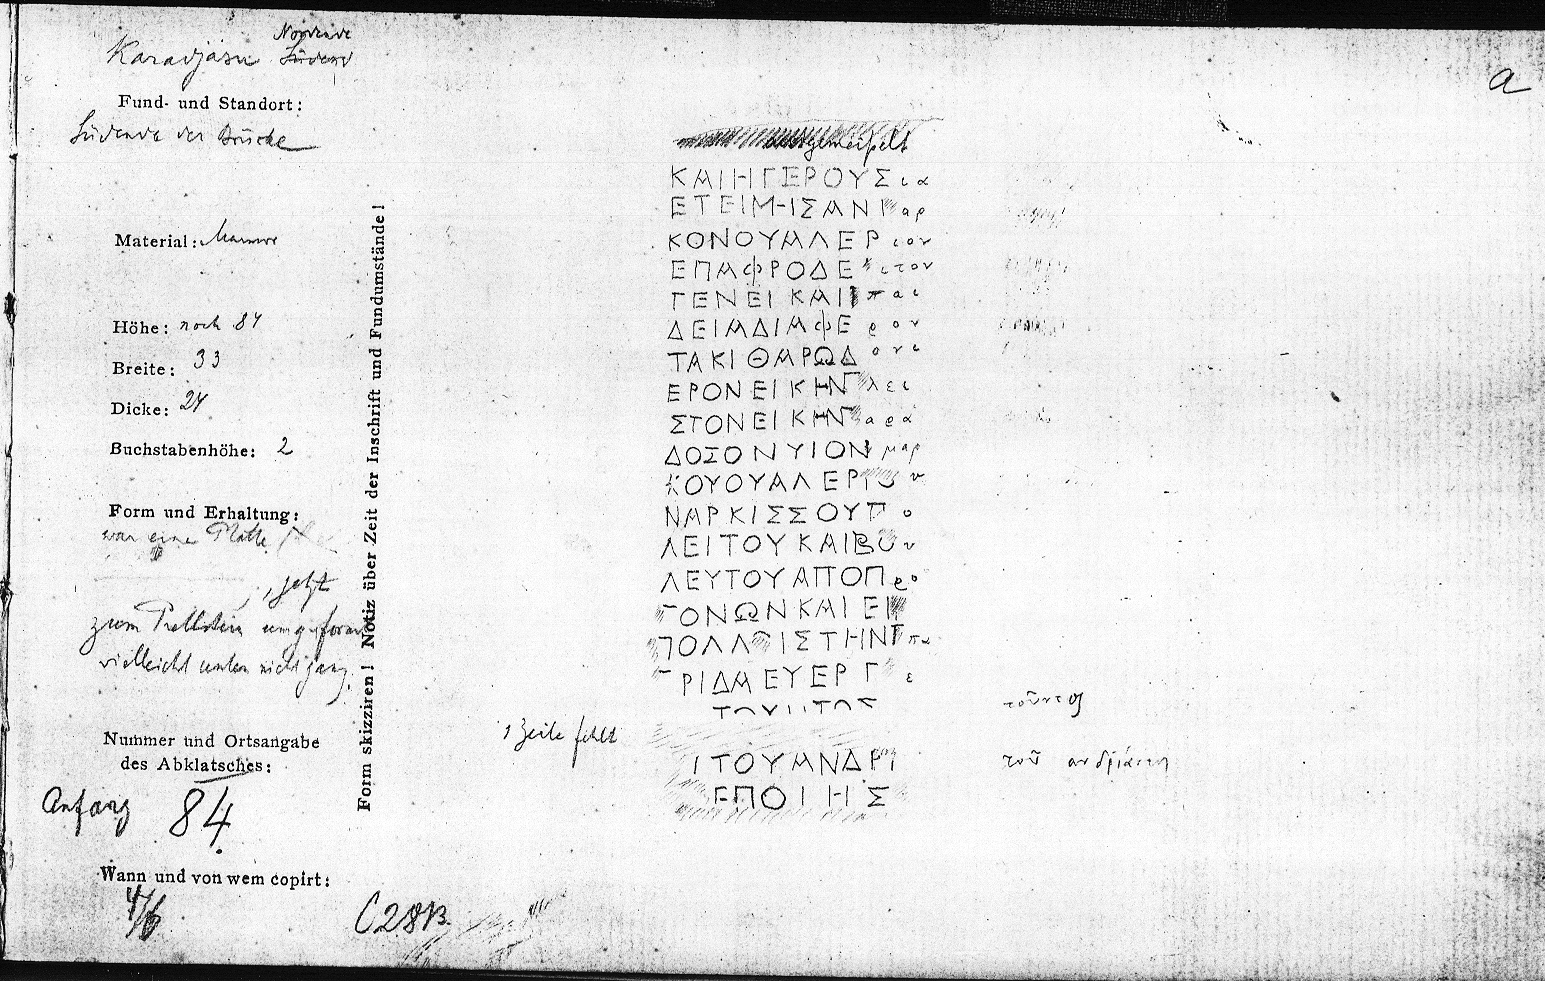 Karadjasu Nordende Südend
a
Fund- und Standort:
Südende der Brücke
Material: Marmor
Höhe: noch 84
Breite: 33
Dicke: 24
Buchstabenhöhe: 2
Form und Erhaltung:
war eine Platte
, jetzt
zum Prellstein umgeformt
vielleicht unten nicht ganz
Nummer und Ortsangabe
des Abklatsches:
Anfang 84.
Wann und von wem copirt:
4/6
C28B.
Form skizziren! Notiz über Zeit der Inschrift und Fundumstände!
ausgemeißelt
ΚΑΙΗΓΕΡΟΥΣια
ΕΤΕΙΜΗΣΑΝΜαρ
ΚΟΝΟΥΑΛΕΡιον
ΕΠΑΦΡΟΔΕιτον
ΓΕΝΕΙΚΑΙπαι
ΔΕΙΑΔΙΑΦΕρον
ΤΑΚΙΘΑΡΩΔονι
ΕΡΟΝΕΙΚΗΝπλει
ΣΤΟΝΕΙΚΗΝπαρά
ΔΟΞΟΝΥΙΟΝμαρ
ΚΟΥΟΥΑΛΕΡΙΟυ
ΝΑΡΚΙΣΣΟΥΠο
ΛΕΙΤΟΥΚΑΙΒΟυ
ΛΕΥΤΟΥΑΠΟΠρο
ΓΟΝΩΝΚΑΙΕΝ
ΠΟΛΛΟΙΣΤΗΝπα
ΤΡΙΔΑΕΥΕΡΓε
ΤΟΥΝΤΟΣ τοῦντος
1 Zeile fehlt
ΙΤΟΥΑΝΔΡΙ τοῦ ανδριάντος
ΕΠΟΙΗΣ